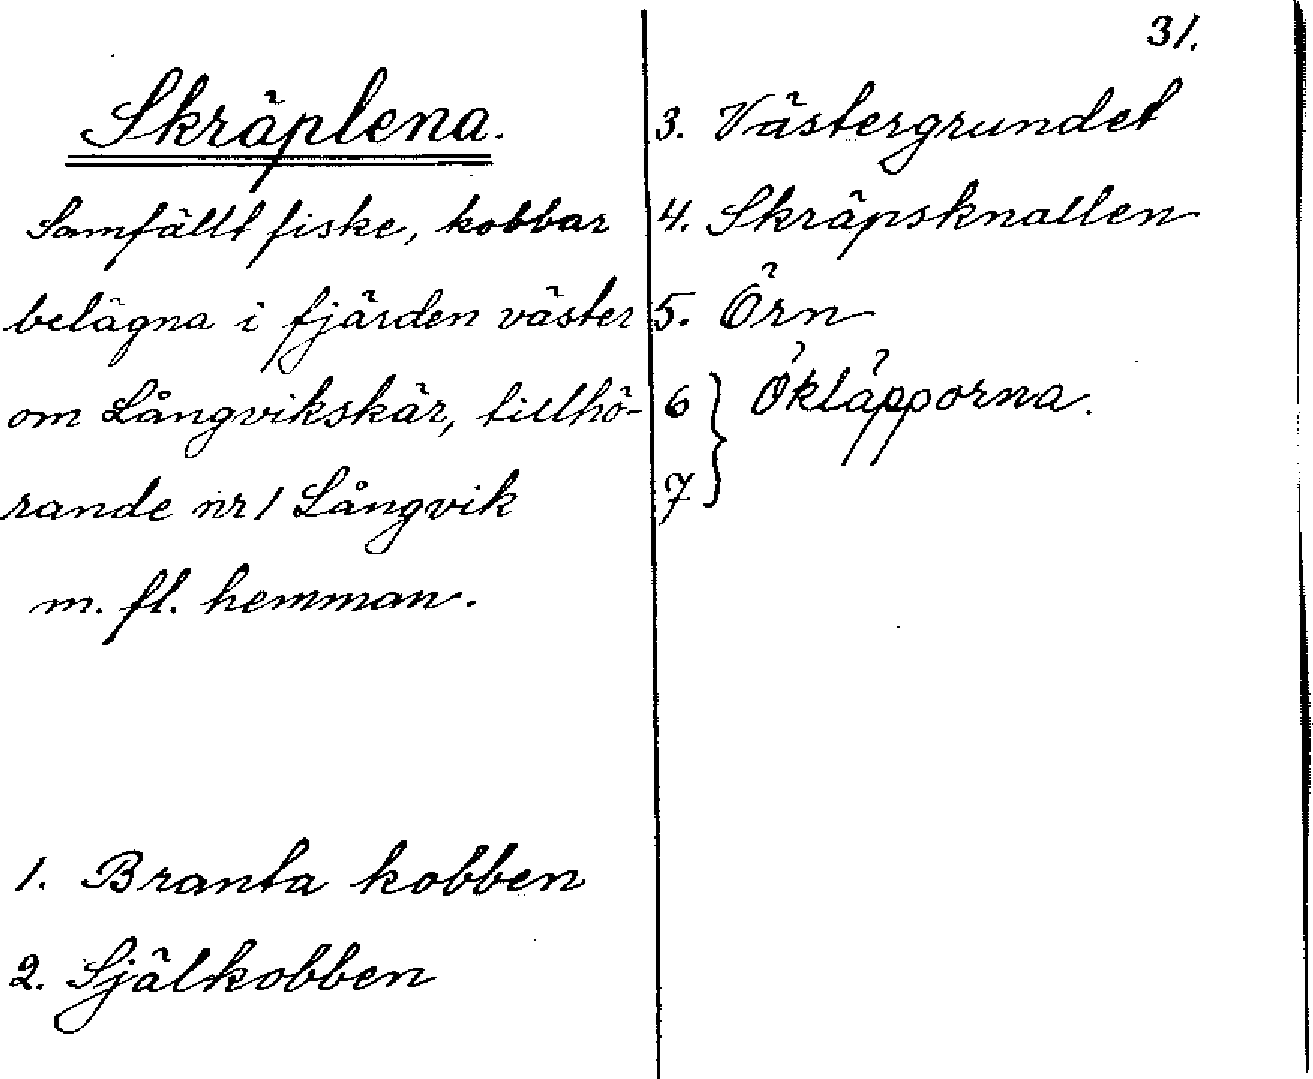 31.
Skräplena.
Samfällt fiske, kobbar
belägna i fjärden väster
om Långvikskär, tillhö-
rande nr 1 Långvik
m. fl. hemman.
1. Branta kobben
2. Själkobben
3. Västergrundet
4. Skräpsknallen
5. Örn
6 } Ökläpporna.
7